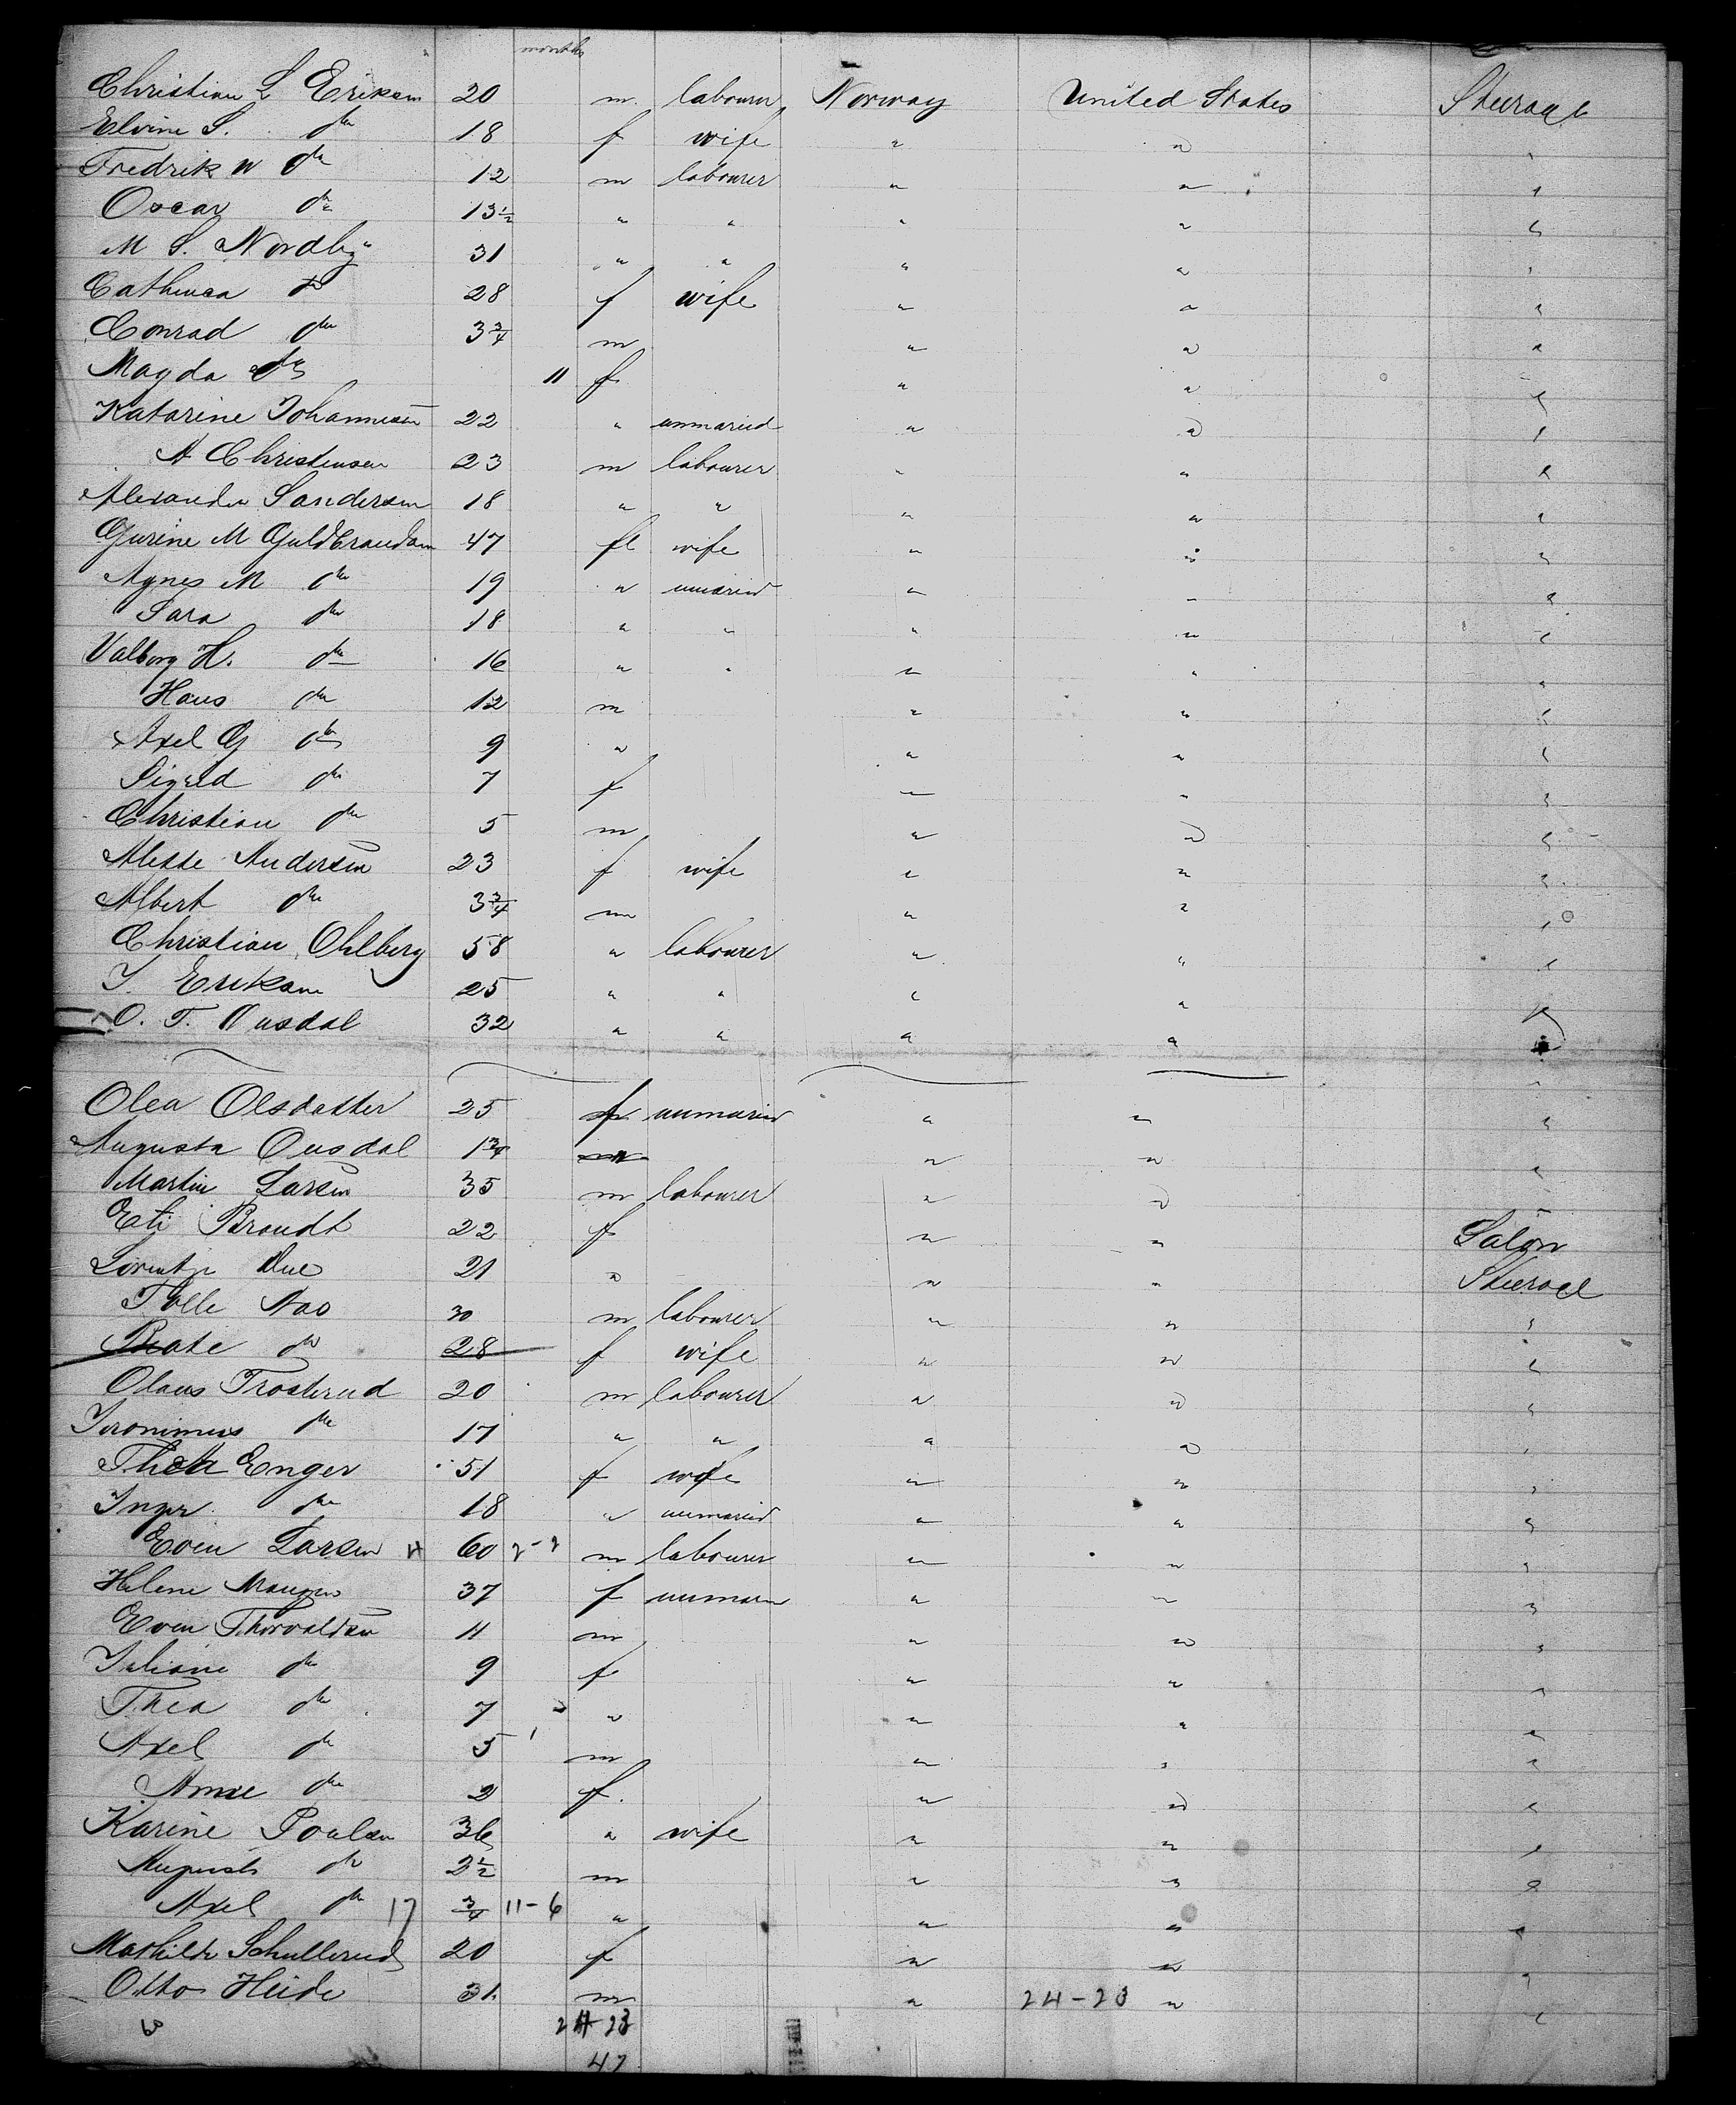 months
Christian L Eriksen 20 m. labourer Norway United States Steerage
Elvine S. do 18 f wife " " "
Fredrik W do 12 m labourer " " "
Oscar do 13½ " " " " "
M S. Nordby 31 " " " " "
Cathinca do 28 f wife " " "
Conrad do 3¾ m " " "
Magda do 11 f " " "
Katarine Johannesen 22 " unmaried " " "
A Christensen 23 m labourer " " "
Alexander Sandersen 18 " " " " "
Gurine M Guldbrandsen 47 fl wife " " "
Agnes M do 19 " unmaried " " "
Sara do 18 " " " " "
Valborg H. do 16 " " " " "
Hans do 12 m " " "
Axel G do 9 " " " "
Sigrid do 7 f " " "
Christian do 5 m " " "
Alette Andersen 23 f wife " " "
Albert do 3¾ m " " "
Christian Ohlberg 58 " labourer " " "
J. Eriksen 25 " " " " "
O. T. Ousdal 32 " " " " "
Olea Olsdatter 25 f unmaried " " "
Augusta Ousdal 1¾ " " "
Martin Larsen 35 m labourer " " "
Eli Brandt 22 f " " Salon
Lorentze Due 21 " " " Steerage
Tolle Aas 30 m labourer " " "
Beate do 28 f wife " " "
Olaus Trosterud 20 m labourer " " "
Jeronimus do 17 " " " " "
Thea Enger 51 f wife " " "
Inger do 18 " unmaried " " "
Even Larsen 60 2-2 m labourer " " "
Helene 37 f unmarr " " "
Even Thorvaldsen 11 m " " "
Juliane do 9 f " " "
Thea do 7 " " " "
Axel do 5 m " " "
Anne do 2 f. " " "
Karine Poulsen 36 " wife " " "
August do 2½ m " " "
Axel do 17 ¾ 11-6 " " " "
Mathilde Schullerud 20 f " " "
Otto Heide 31 m " 24-23 " "
24-23
47